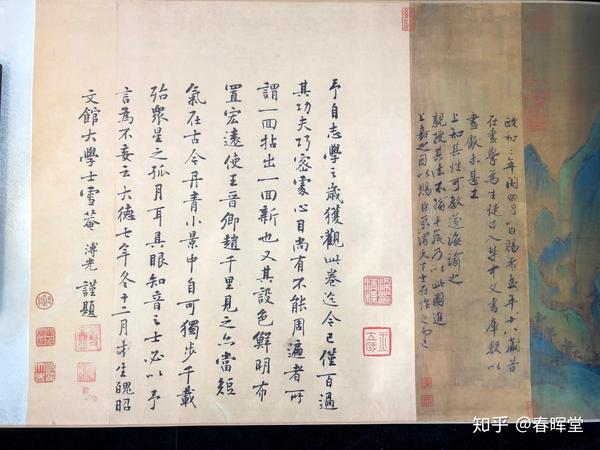 政和三年閏四月一日賜希孟年十八歲昔
在畫學為生徒召入禁中文書庫數以
畫獻未甚工
上知其性可教遂誨諭之
親授其法不踰半歲乃以此圖進
上嘉之因以賜臣京謂天下士在作之而已
予自志學之歲獲觀此卷迄今已僅百過
其功夫巧密處心目尚有不能周遍者所
謂一回拈出一回新也又其設色鮮明布
置宏遠使王晉卿趙千里見之亦當短
氣在古今丹青小景中自可獨步千載
殆眾星之孤月耳具眼知音之士必以予
言為不妄云大德七年冬十二月才生魄昭
文館大學士雪菴溥光謹題
知乎 @春晖堂